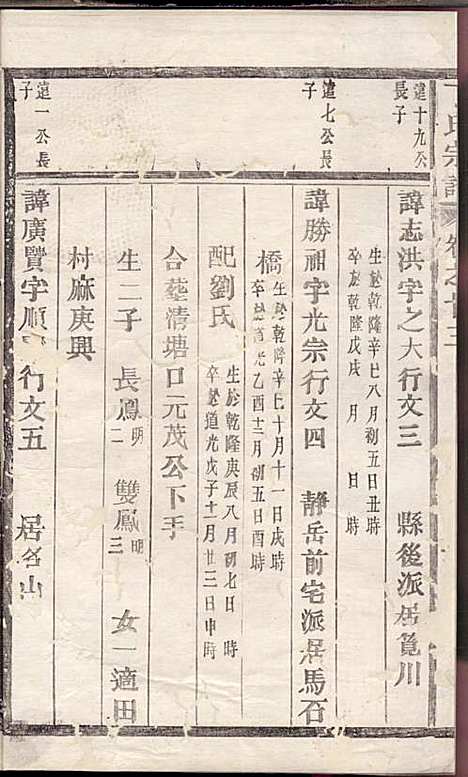 氏宗譜 卷之廿三
達十九公
長子
諱志洪字之大行文三 縣後派居筧川
生於乾隆辛巳八月初五日丑時
卒於乾隆戊戌 月 日 時
達七公長
子
諱勝祖字光宗行文四 靜岳前宅派居馬石
橋
生於乾隆辛巳十月十一日戌時
卒於道光乙酉十二月初五日酉時
配劉氏
生於乾隆庚辰八月初七日 時
卒於道光戊子十一月廿三日申時
合塟清塘口元茂公下手
生二子 長鳳明二 雙鳳明三 女一適田
村麻庚興
達一公長
子
諱廣賢字順 行文五 居名山